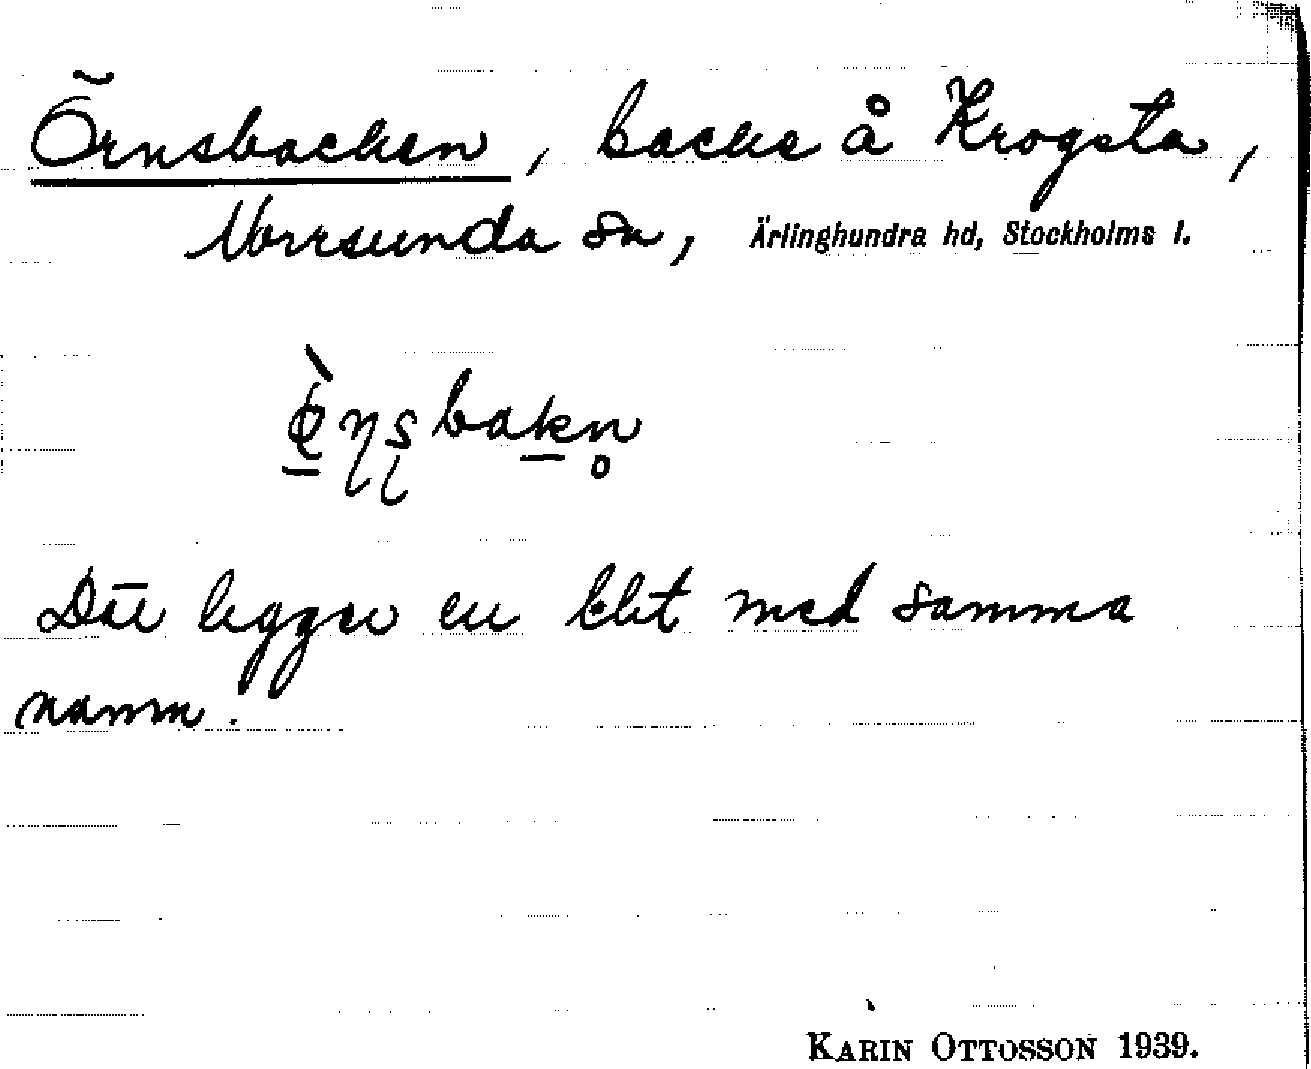 Örnsbacken, backe å Krogsta,
Norrsunda sn, Ärlinghundra hd, Stockholms l.
Där ligger en bit med samma
namn.
KARIN OTTOSSON 1939.